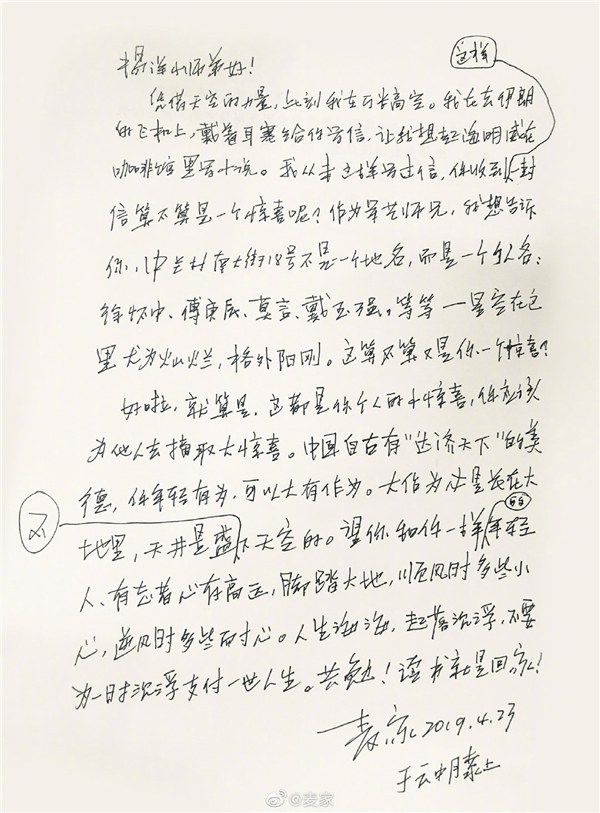 这样
杨洋小师弟好！
凭借天空的力量，此刻我在万米高空。我在去伊朗
的飞机上，戴着耳塞给你写信，让我想起海明威在
咖啡馆里写小说。我从未这样写过信，你收到一封
信算不算是一个惊喜呢？作为军艺师兄，我想告诉
你，中关村南大街18号不是一个地名，而是一个人名：
徐怀中、傅庚辰、莫言、戴玉强。等等一星空在它
里尤为灿烂，格外阳刚。这算不算又是你一个惊喜？
好啦，就算是，这都是你个人的小惊喜，你应该
为他人去摘取大惊喜。中国自古有"达济天下"的美
德，你年轻有为，可以大有作为。大作为必是长在大
的
地里，天井是盛不天空的。望你和你一样年轻
不
人、有志者心有高远，脚踏大地，顺风时多些小
心，逆风时多些耐心。人生海海，起落沉浮，不要
为一时沉浮支付一世人生。共勉！读书就是回家！
麦家 2019.4.23
于云中膝上
@麦家